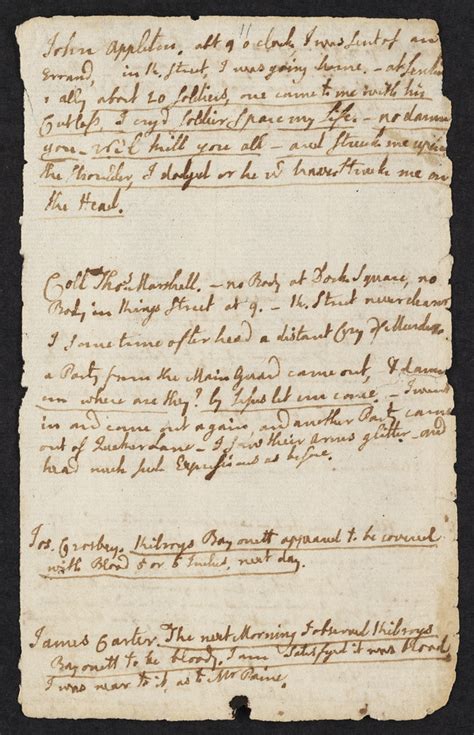 John Appleton. abt 9 o clock, I was sent of an
Errand, in K. Street, I was going home. – at Jenkin
s ally about 20 Soldiers, one came to me with his
Cutlass, I cry'd Soldier Spare my Life. – no damn
you – we'l kill you all – and Struck me upon
the Shoulder, I dodged or he wd have Struck me on
the Head.
Coll Thos. Marshall. – no Body at Dock Square, no
Body in Kings Street at 9. – K. Street never clearer
I some time after head a distant Cry of Murder.
a Party from the Main Guard came out, & damn
em where are they? by Jesus let em come. – I went
in and come out again, and another Party came
out of Quaker Lane – I saw their arms glitter – and
head much such Expressions as before.
Jos. Crosbey. Kilroys Bayonett appeared to be covered
with Blood 5 or 6 Inches, next day.
James Carter. The next Morning I observed Kilroys
Bayonett to be bloody. I am Satisfyed it was blood
I was near to it, as to Mr Paine.